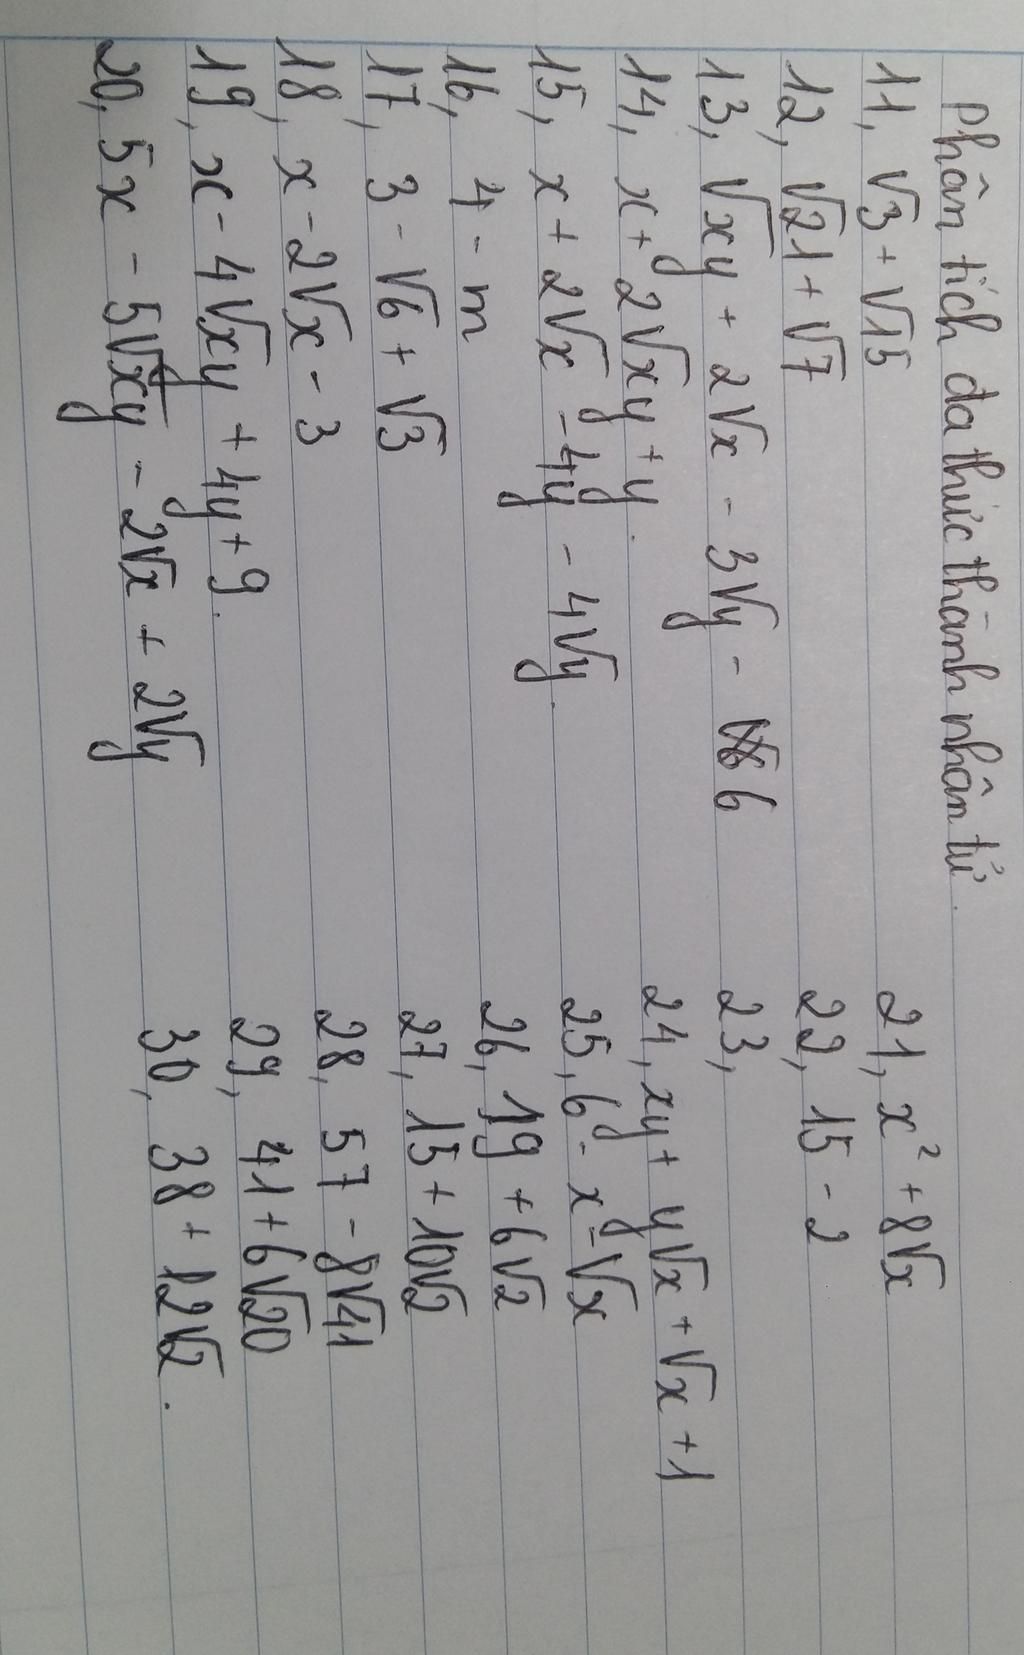 Phân tích đa thức thành nhân tử.
11, √3 + √15
12, √21 + √7
13, √xy + 2√x - 3√y - 6
14, x + 2√xy + y.
15, x + 2√x - 4y - 4√y.
16, 4 - m
17, 3 - √6 + √3
18, x - 2√x - 3
19, x - 4√xy + 4y + 9.
20, 5x - 5√xy - 2√x + 2√y
21, x² + 8√x
22, 15 - 2
23,
24, xy + y√x + √x + 1
25, 6 - x - √x
26, 19 + 6√2
27, 15 + 10√2
28, 57 - 8√41
29, 41 + 6√20
30, 38 + 12√2.